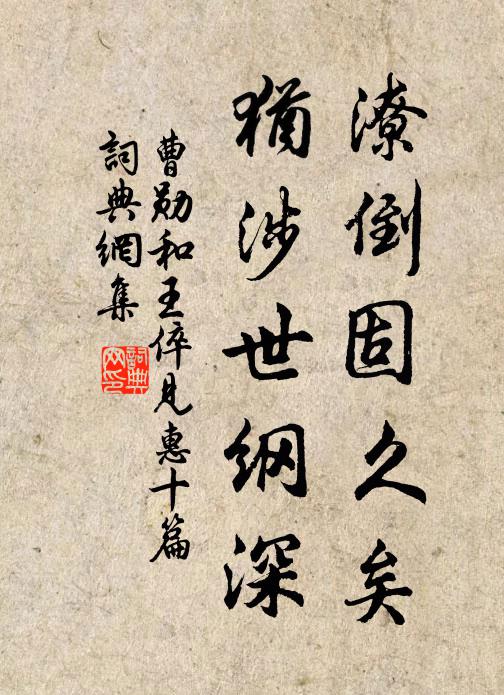 潦倒固久矣
猶涉世纲深
曹勋和王倅見惠十篇
詞典網集
詞典网印